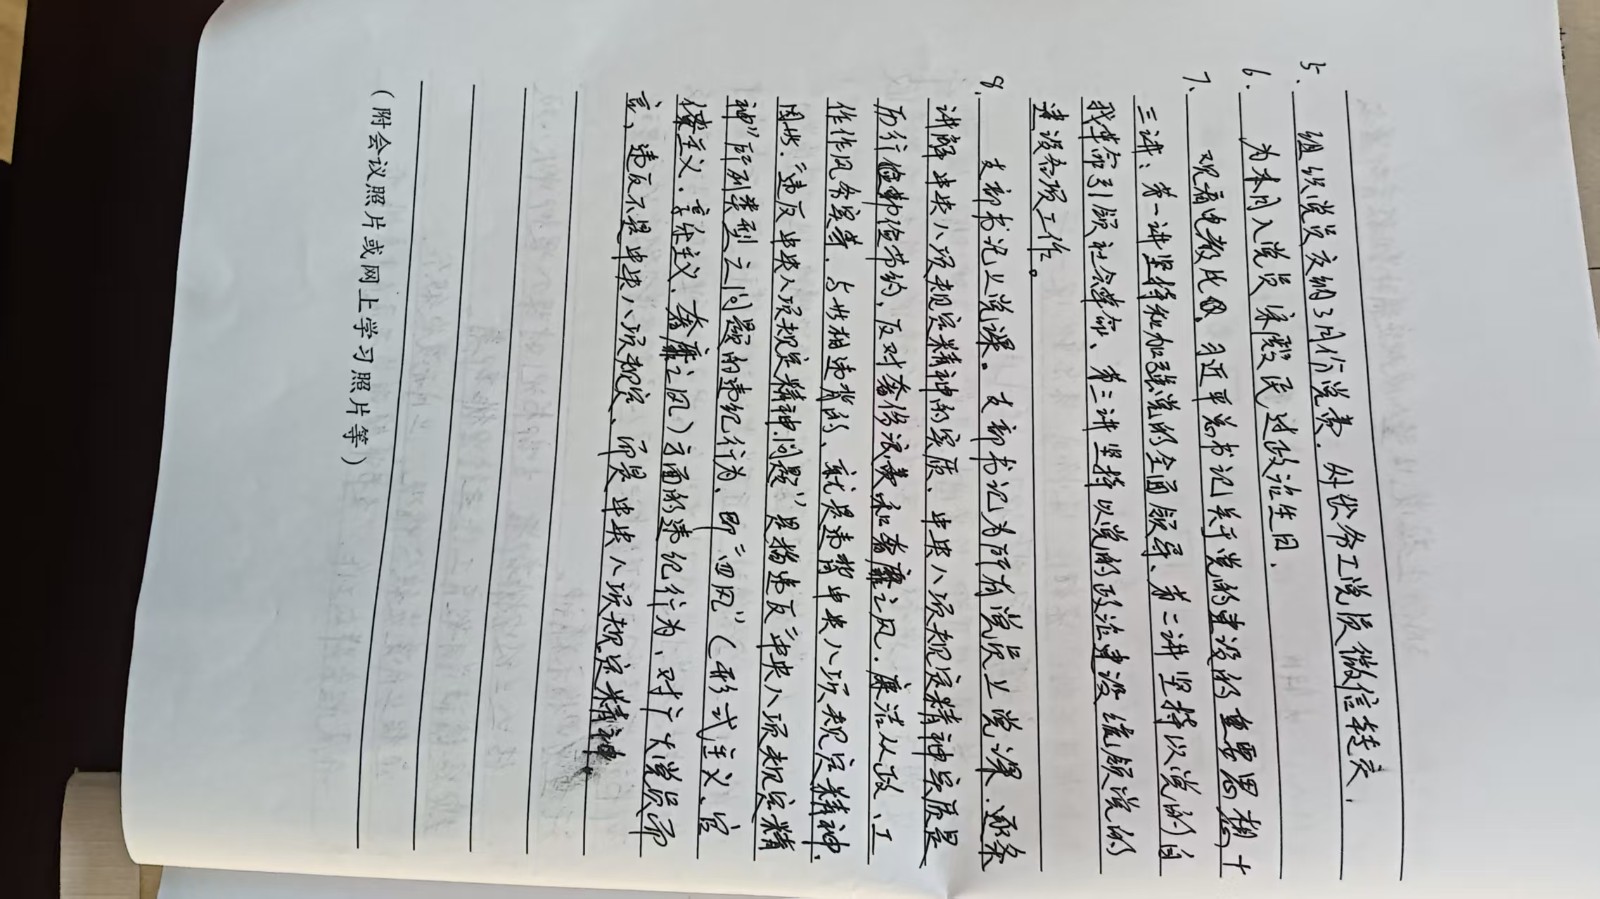 5. 组织党员交纳3月份党费，外出务工党员微信转交．
6. 为本月入党员宋殿民过政治生日．
7、观看电教片《习近平总书记关于党的建设的重要思想十
三讲：第一讲坚持和加强党的全面领导、第二讲坚持以党的自
我革命引领社会革命、第三讲坚持以党的政治建设统领党的
建设各项工作。
8. 支部书记上党课。支部书记为所有党员上党课，逐条
讲解中央八项规定精神的实质，中央八项规定精神实质是
厉行勤俭节约，反对奢侈浪费和奢靡之风，廉洁从政、工
作作风务实等，与此相违背的，就是违背中央八项规定精神，
因此，“违反中央八项规定精神问题”是指违反“中央八项规定精
神”所列类型之问题的违纪行为，即“四风”（形式主义、官
僚主义、享乐主义、奢靡之风）方面的违纪行为，对于党员而
言，违反不是中央八项规定，而是中央八项规定精神．
（附会议照片或网上学习照片等）